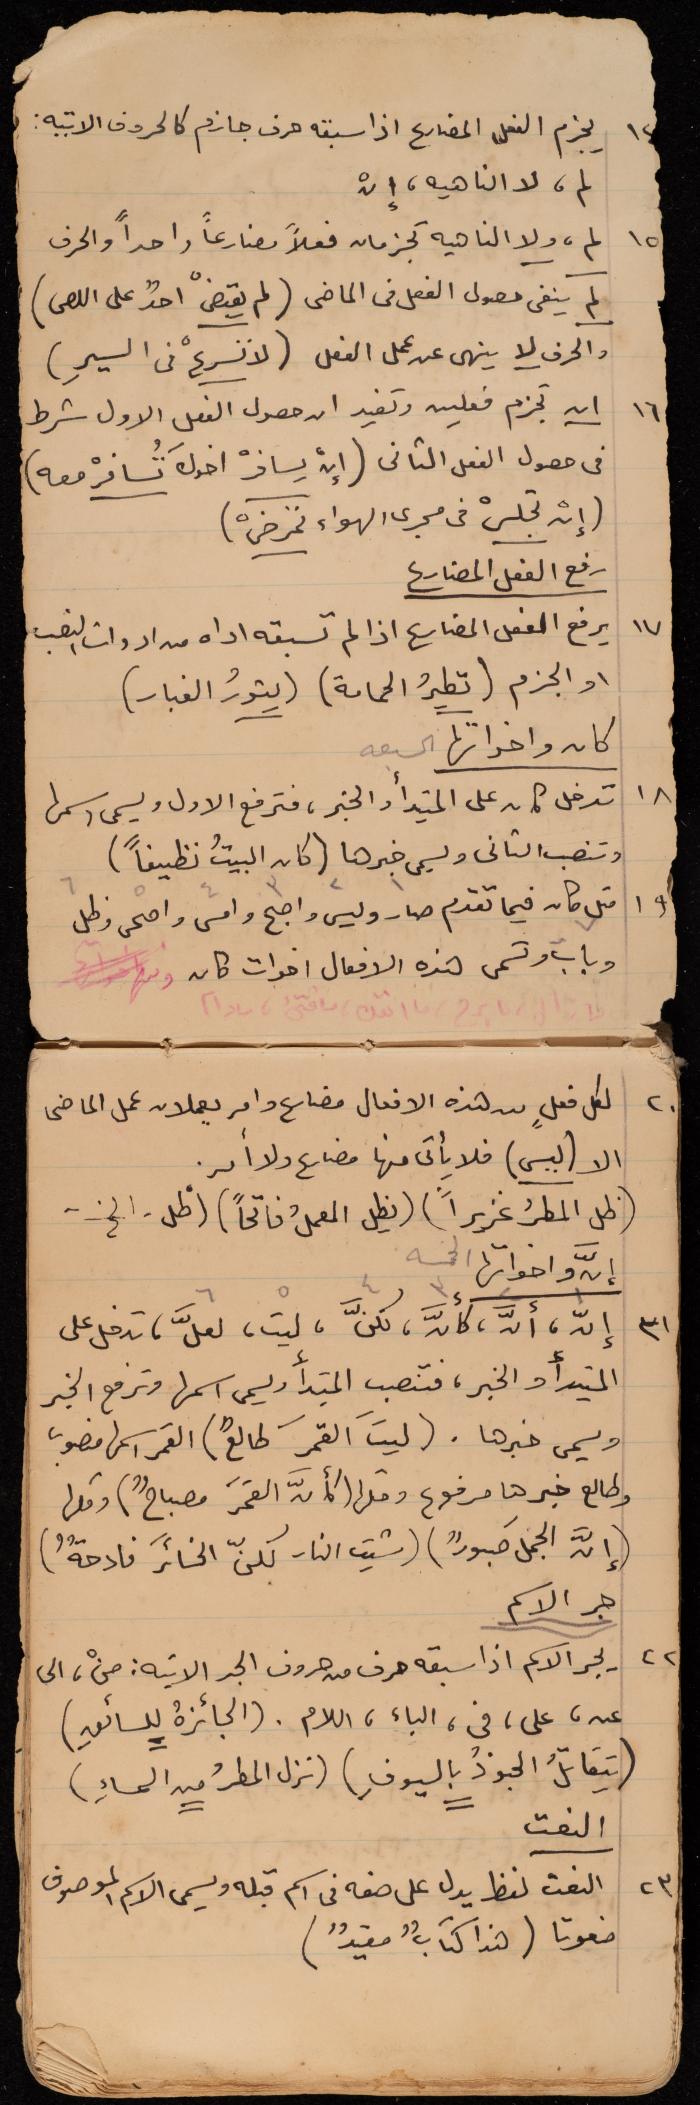 ١٤ يجزم الفعل المضارع اذا سبقه حرف جازم كالحروف الاتيه:
لم، لا الناهيه، إنْ
١٥ لم، ولا الناهيه تجزمان فعلاً مضارعاً واحداً والحرف
لم ينفى حصول الفعل فى الماضى (لم يقبضْ احدٌ على اللص)
والحرف لا ينهى عن عمل الفعل (لا تسرعْ فى السيرِ)
١٦ ان تجزم فعلين وتفيد ان حصول الفعل الاول شرط
فى حصول الفعل الثانى (إنْ يسافرْ اخوك تُسافرْ معه)
(إنْ تجلسْ فى مجرى الهواء تمرضْ)
رفع الفعل المضارع
١٧ يرفع الفعل المضارع اذا لم تسبقه اداه من ادوات النصب
او الجزم (تطيرُ الحمامة) (يثورُ الغبار)
كان واخواتها السبعه
١٨ تدخل كان على المبتدأ والخبر، فترفع الاول ويسمى اسمها
وتنصب الثانى ويسمى خبرها (كان البيتُ نظيفاً)
١٩ مثل كان فيما تقدم صار وليس واصبح وامسى واضحى وظل
١ ٢ ٣ ٤ ٥ ٦
وبات وتسمى هذه الافعال اخوات كان
مازال، مابرح، ما انفك، مافتئ، مادام
٢٠ لكل فعلٍ من هذه الافعال مضارع وامر يعملان عمل الماضى
الا (ليس) فلا يأتى منها مضارع ولا أمر.
(ظل المطرُ غزيراً) (يظل المعملُ فاتحاً) (ظل - الخ -
إنَّ واخواتها الخمسه
٣١ إنّ، أنَّ، كأنَّ، لكنَّ، ليت، لعلَّ، تدخل على
٣ ٤ ٥ ٦
المبتدأ والخبر، فتنصب المبتدأ ويسمى اسمها وترفع الخبر
ويسمى خبرها. (ليتَ القمرَ طالعٌ) القمر اسمها منصوب
وطالع خبرها مرفوع ومثلها (كأنَّ القمرَ مصباحٌ) ومثلها
(إنَّ الجمل صبورٌ) (شبت النار لكنّ الخسائرَ فادحةٌ)
جر الاسم
٢٢ يجر الاسم اذا سبقه حرف من حروف الجر الاتيه: منْ، الى
عن، على، فى، الباء، اللام. (الجائزةُ للسائقِ)
(يتقاتلُ الجنودُ بالسيوفِ) (نزل المطرُ من السماءِ)
النعت
٢٣ النعت لفظ يدل على صفه فى اسم قبله ويسمى الاسم الموصوف
منعوتا (هذا كتابٌ مفيدٌ)